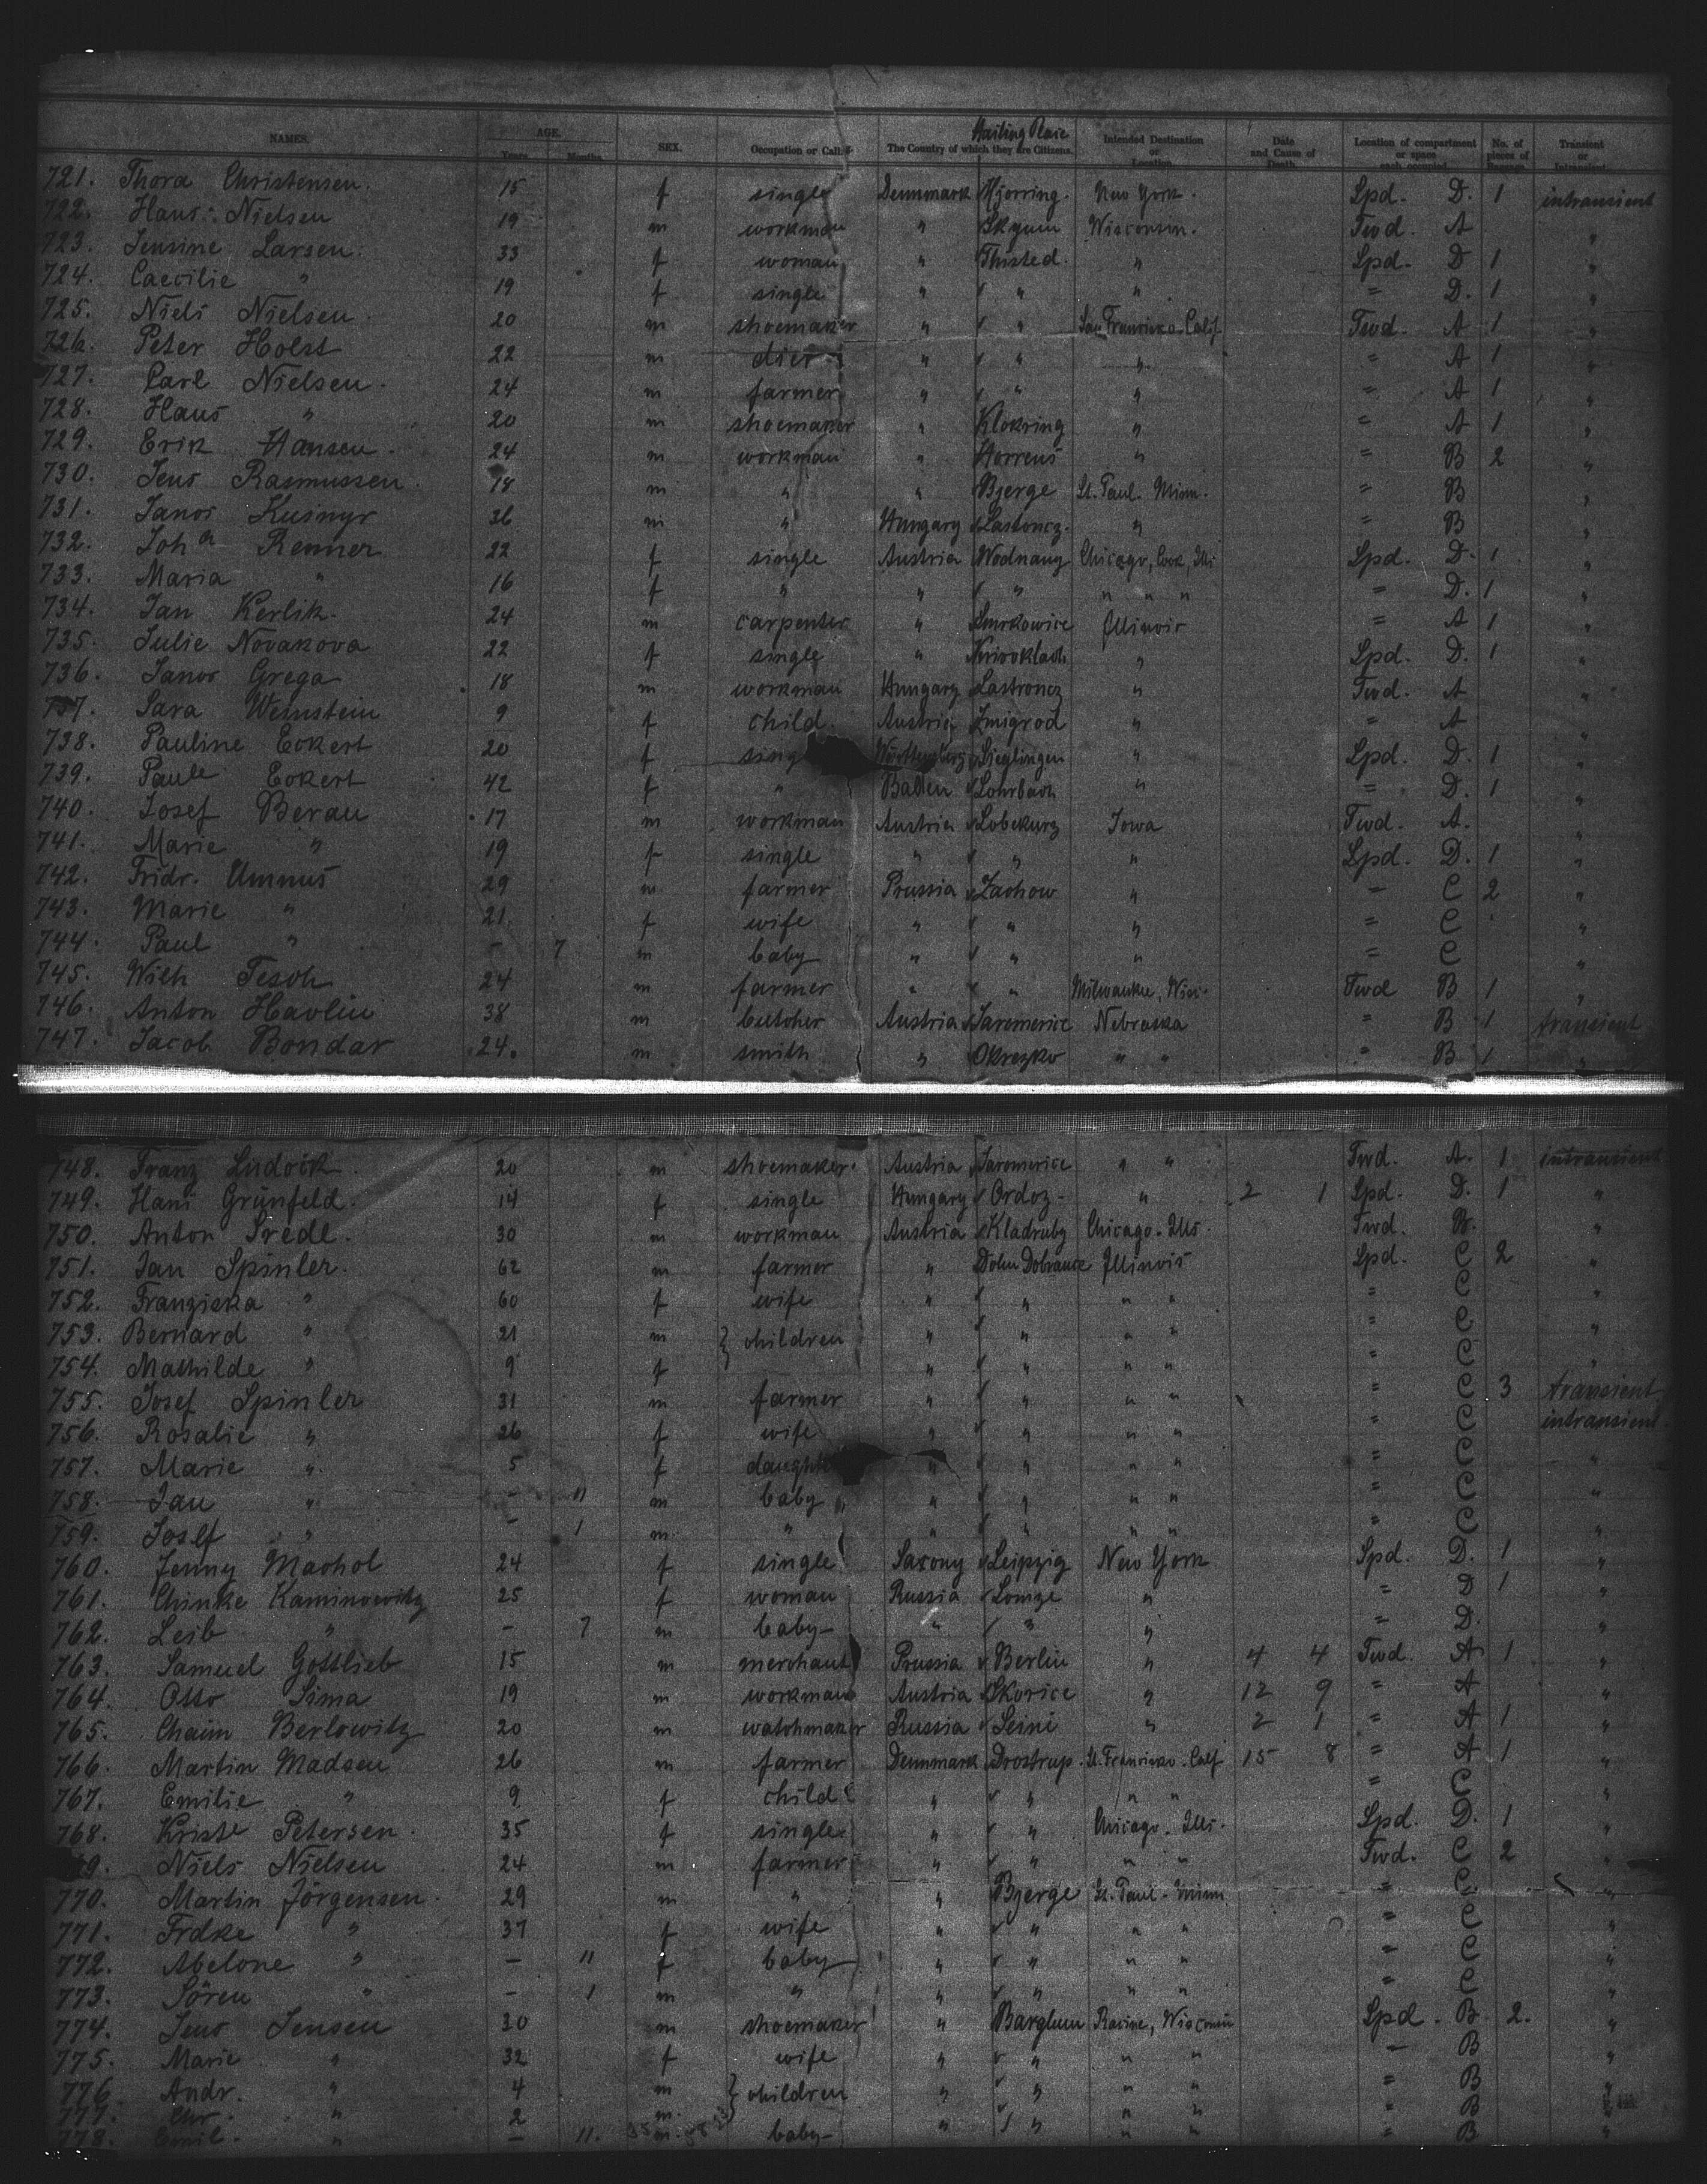 Mailing Place
NAMES. AGE. SEX. Occupation or Call. The Country of which they are Citizens. Intended Destination or Location. Date and Cause of Death. Location of compartment or space each occupied No. of pieces of Transient or
Years. Months.
721. Thora Christensen. 15 f single Dennmark Hjorring. New York. Spd. D. 1 intransient
722. Hans Nielsen 19 m workman " Skyum Wisconsin. Fwd. A "
723. Jensine Larsen. 33 f woman " Thisted. " Spd. D 1 "
724. Caecilie " 19 f single " " " = D. 1 "
725. Niels Nielsen. 20 m shoemaker " " San Francisko Calif Fwd. A 1 "
726. Peter Holst 22 m dier " " " = A 1 "
727. Carl Nielsen. 24 m farmer " " " = A 1 "
728. Hans " 20 m shoemaker " Klokring " = A 1 "
729. Erik Hansen. 24 m workman " Horrens " = B 2 "
730. Jens Rasmussen. 18 m " " Bjerge St. Paul. Minn. = B "
731. Janos Kusnyr 36 m " Hungary Lastoncz. " = B "
732. Joha Renner 22 f single Austria Wodnany Chicago, Cook, Ills Spd. D. 1 "
733. Maria " 16 f " " " " " " = D. 1 "
734. Jan Kerlik. 24 m carpenter " Smrkowice Illinois = A 1 "
735. Julie Novakova 22 f single " Krivoklad " Spd. D. 1 "
736. Janos Grega 18 m workman Hungary Lastroncz " Fwd. A "
737. Sara Weinstein 9 f child. Austria Zmigrod " = A "
738. Pauline Eckert 20 f sing Württemberg Sieglingen " Spd. D. 1 "
739. Paule Eckert 42 f " Baden Lohrbach " = D. 1 "
740. Josef Beran 17 m workman Austria Lobekurz Iowa Fwd. A. "
741. Marie " 19 f single " " " Spd. D. 1 "
742. Fridr. Ummus 29 m farmer Prussia Zachow " = C 2 "
743. Marie " 21 f wife " " " = C "
744. Paul " - 7 m baby " " " = C "
745. Wilh Tesch 24 m farmer " " Milwaukee, Wisc. Fwd B 1 "
746. Anton Havlin 38 m butcher Austria Jaromerice Nebraska = B 1 transient
747. Jacob Bondar 24. m smith " Okrezko " " = B 1 "
748. Franz Ludvik 20 m shoemaker. Austria Jaromerice " " Fwd. A. 1 intransient
749. Hani Grünfeld. 14 f single Hungary Ordoz - " 2 1 Spd. D. 1 "
750. Anton Sredl. 30 m workman Austria Kladruby Chicago. Ills. Fwd. B. "
751. Jan Spinler. 62 m farmer " Dolni Dobrauce Illinois Spd. C 2 "
752. Franziska " 60 f wife " " " " = C "
753. Bernard " 21 m } children " " " " = C "
754. Mathilde " 9 f " " " " = C "
755. Josef Spinler 31 m farmer " " " " = C 3 transient
756. Rosalie " 26 f wife " " " " = C intransient.
757. Marie " 5 f daught " " " " = C "
758. Jan " - 11 m baby " " " " = C "
759. Josef " - 1 m " " " " " = C "
760. Jenny Machol 24 f single Saxony Leipzig New York Spd. D. 1 "
761. Chinke Kaminowitz 25 f woman Russia Lomze " = D 1 "
762. Leib " - 7 m baby " " " = D. "
763. Samuel Gottlieb 15 m merchant Prussia Berlin " 4 4 Fwd. A 1 "
764. Otto Sima 19 m workman Austria Skorice " 12 9 = A "
765. Chaim Berlowitz 20 m watchmaker Russia Seini " 2 1 = A 1 "
766. Martin Madsen 26 m farmer Dennmark Drostrup. St. Francisko. Calf 15 8 = A 1 "
767. Emilie " 9 f child " " " " = C "
768. Kriste Petersen. 35 f single " " Chicago. Ills. Spd. D. 1 "
9. Niels Nielsen 24 m farmer " " " " Fwd. C 2 "
770. Martin Jörgensen. 29 m " " Bjerge St. Paul. Minn = C "
771. Frdke " 37 f wife " " " " = C "
772. Abelone " - 11 f baby " " " " = C "
773. Sören " - 1 m " " " " " = C "
774. Jens Jensen 30 m shoemaker " Barglum Racine, Wisconsin Spd. B. 2. "
775. Marie " 32 f wife " " " " - B "
776. Andr. " 4 m } children " " " " = B "
777. Chr. " 2 m. " " " " = B "
778. Emil. " - 11. m. baby " " " " = B "